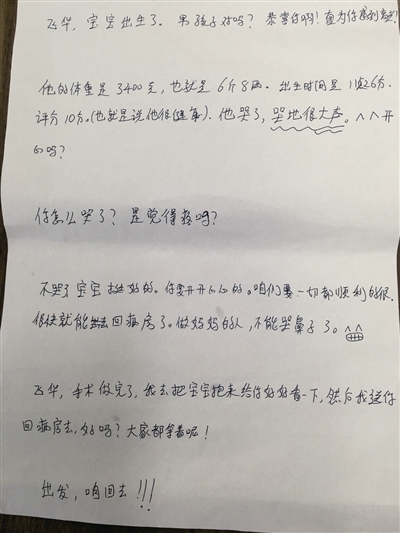 飞华，宝宝出生了。男孩子对吗？恭喜你啊！真为你感到高兴！
他的体重是3400克，也就是6斤8两。出生时间是11点26分.
评分10分。(也就是说他很健康)．他哭了，哭地很大声。^^开
心吗？
你怎么哭了？是觉得疼吗？
不哭了宝宝挺好的。你要开开心心的。咱们要一切都顺利的很．
很快就能出去回病房了。做妈妈的人，不能哭鼻子了。
飞华，手术做完了，我去把宝宝抱来给你好好看一下，然后我送你
回病房去，好吗？大家都等着呢！
出发，咱回去!!!